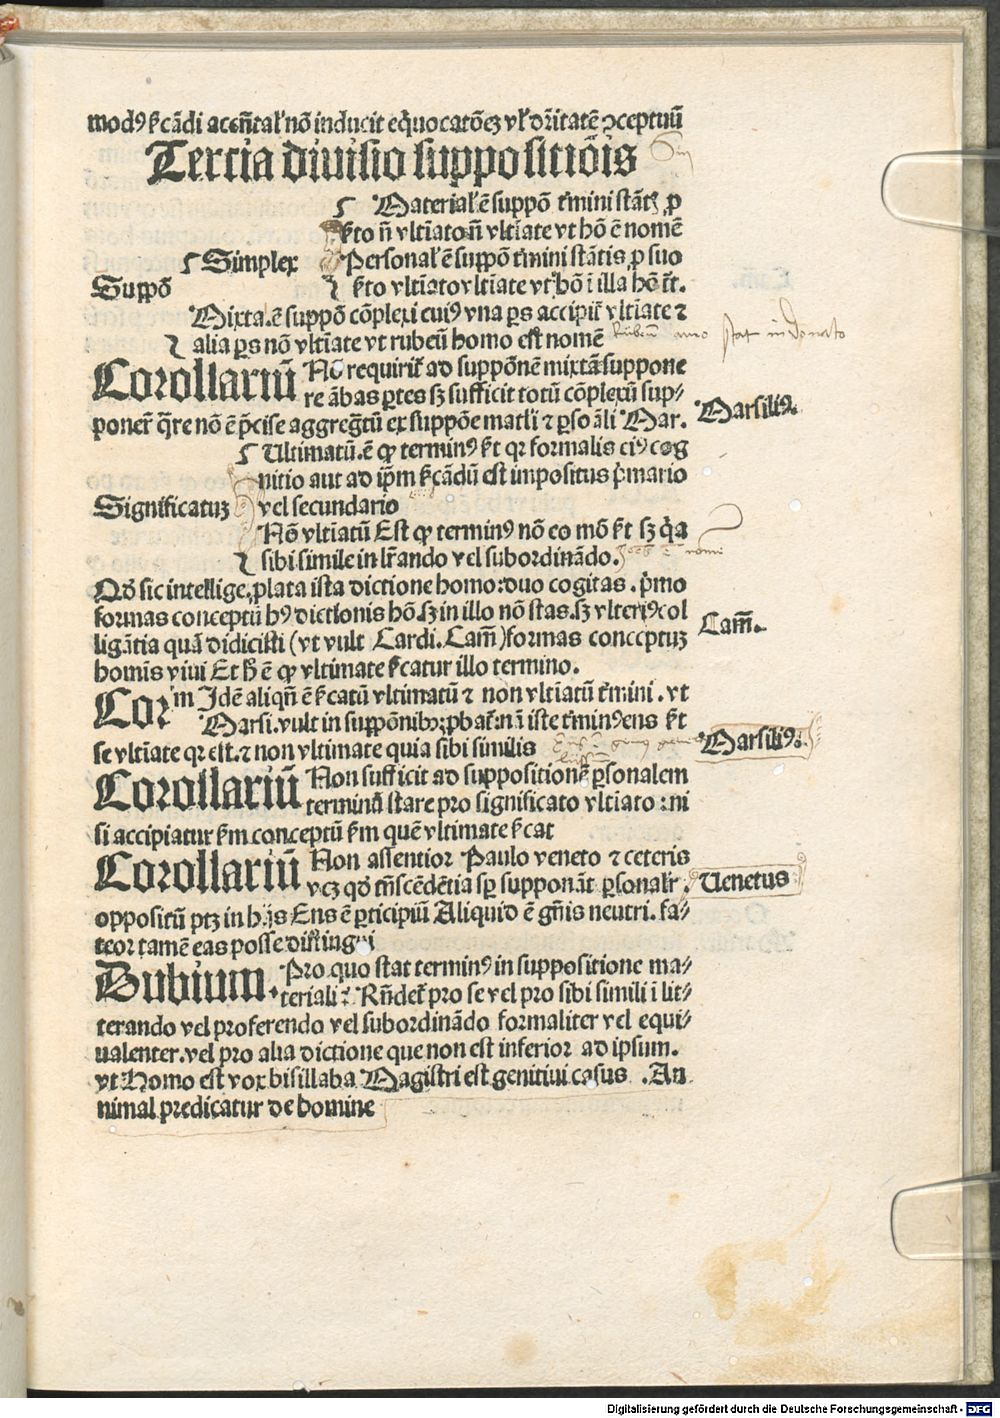 modꝰ ſcādi accn̄tal' nō inducit eq̄uocatōeꝫ vl' dr̄itatē ↄceptuū
Tercia diuisio suppositiōis
Material' ē suppō t'mini stāt' ꝓ
ſc̄to n̄ vltīato n̄ vltīate vt hō ē nomē
Simplex Personal' ē suppō t'mini stātis ꝓ suo
Suppō ſc̄to vltīato vltīate vt hō i illa hō c̄r̄.
Mixta. ē suppō cōplexi cuiꝰ vna ꝑs accipit' vltīate ⁊
alia ꝑs nō vltīate vt rubeū homo est nomē
Corollariū Nō requirit' ad suppōnem mixtā suppone
re ābas ꝑtes sꝫ sufficit totū cōplexū sup⸗
poner' q̄re nō ē p̄cise aggregatū ex suppōe matl'i ⁊ ꝑsoāli Mar.
Marsiliꝰ.
Ultimatū. ē ꝙ terminꝰ ſc̄t qꝛ formalis eiꝰ cog
nitio aut ad ip̄m ſcādū est impositus p̄mario
Significatuꝫ vel secundario
Nō vltīatū Est ꝙ terminꝰ nō eo mō ſc̄t sꝫ q̄a
sibi simile in lr̄ando vel subordinādo.
Qd' sic intellige, plata ista dictione homo: duo cogitas. p̄mo
formas conceptū hꝰ dictionis hō. sꝫ in illo nō stas. sꝫ vlteriꝰ col
ligātia quā didicisti (vt vult Cardi. Cam̄) formas conceptuꝫ
Cam̄.
homīs viui Et h̄ ē ꝙ vltimate ſcatur illo termino.
Corm Idē aliqn̄ ē ſcatū vltimatū ⁊ non vltīatū t'mini. vt
Marsi. vult in suppōnibꝫ; ꝓbat'. nā iste t'minꝰ ens ſc̄t
Marsiliꝰ.
se vltīate qꝛ est. ⁊ non vltimate quia sibi similis
Corollariū Non sufficit ad suppositionē ꝑsonalem
terminū stare pro significato vltīato: ni
si accipiatur ſm conceptū ſm quē vltimate ſcat
Corollariū Non assentior Paulo veneto ⁊ ceteris
vcꝫ qd' tn̄scēdētia sꝑ supponāt ꝑsonalr'.
Uenetus
oppositū ptꝫ in hijs Ens ē ꝑticipiū Aliquid ē gn̄is neutri. fa⸗
teor tamē eas posse distingui
Dubium. Pro quo stat terminꝰ in suppositione ma⸗
teriali? Rn̄det' pro se vel pro sibi simili i lit⸗
terando vel proferendo vel subordinādo formaliter vel equi⸗
ualenter. vel pro alia dictione que non est inferior ad ipsum.
vt Homo est vox bisillaba Magistri est genitiui casus. An
nimal predicatur de homine
Digitalisierung gefördert durch die Deutsche Forschungsgemeinschaft - DFG